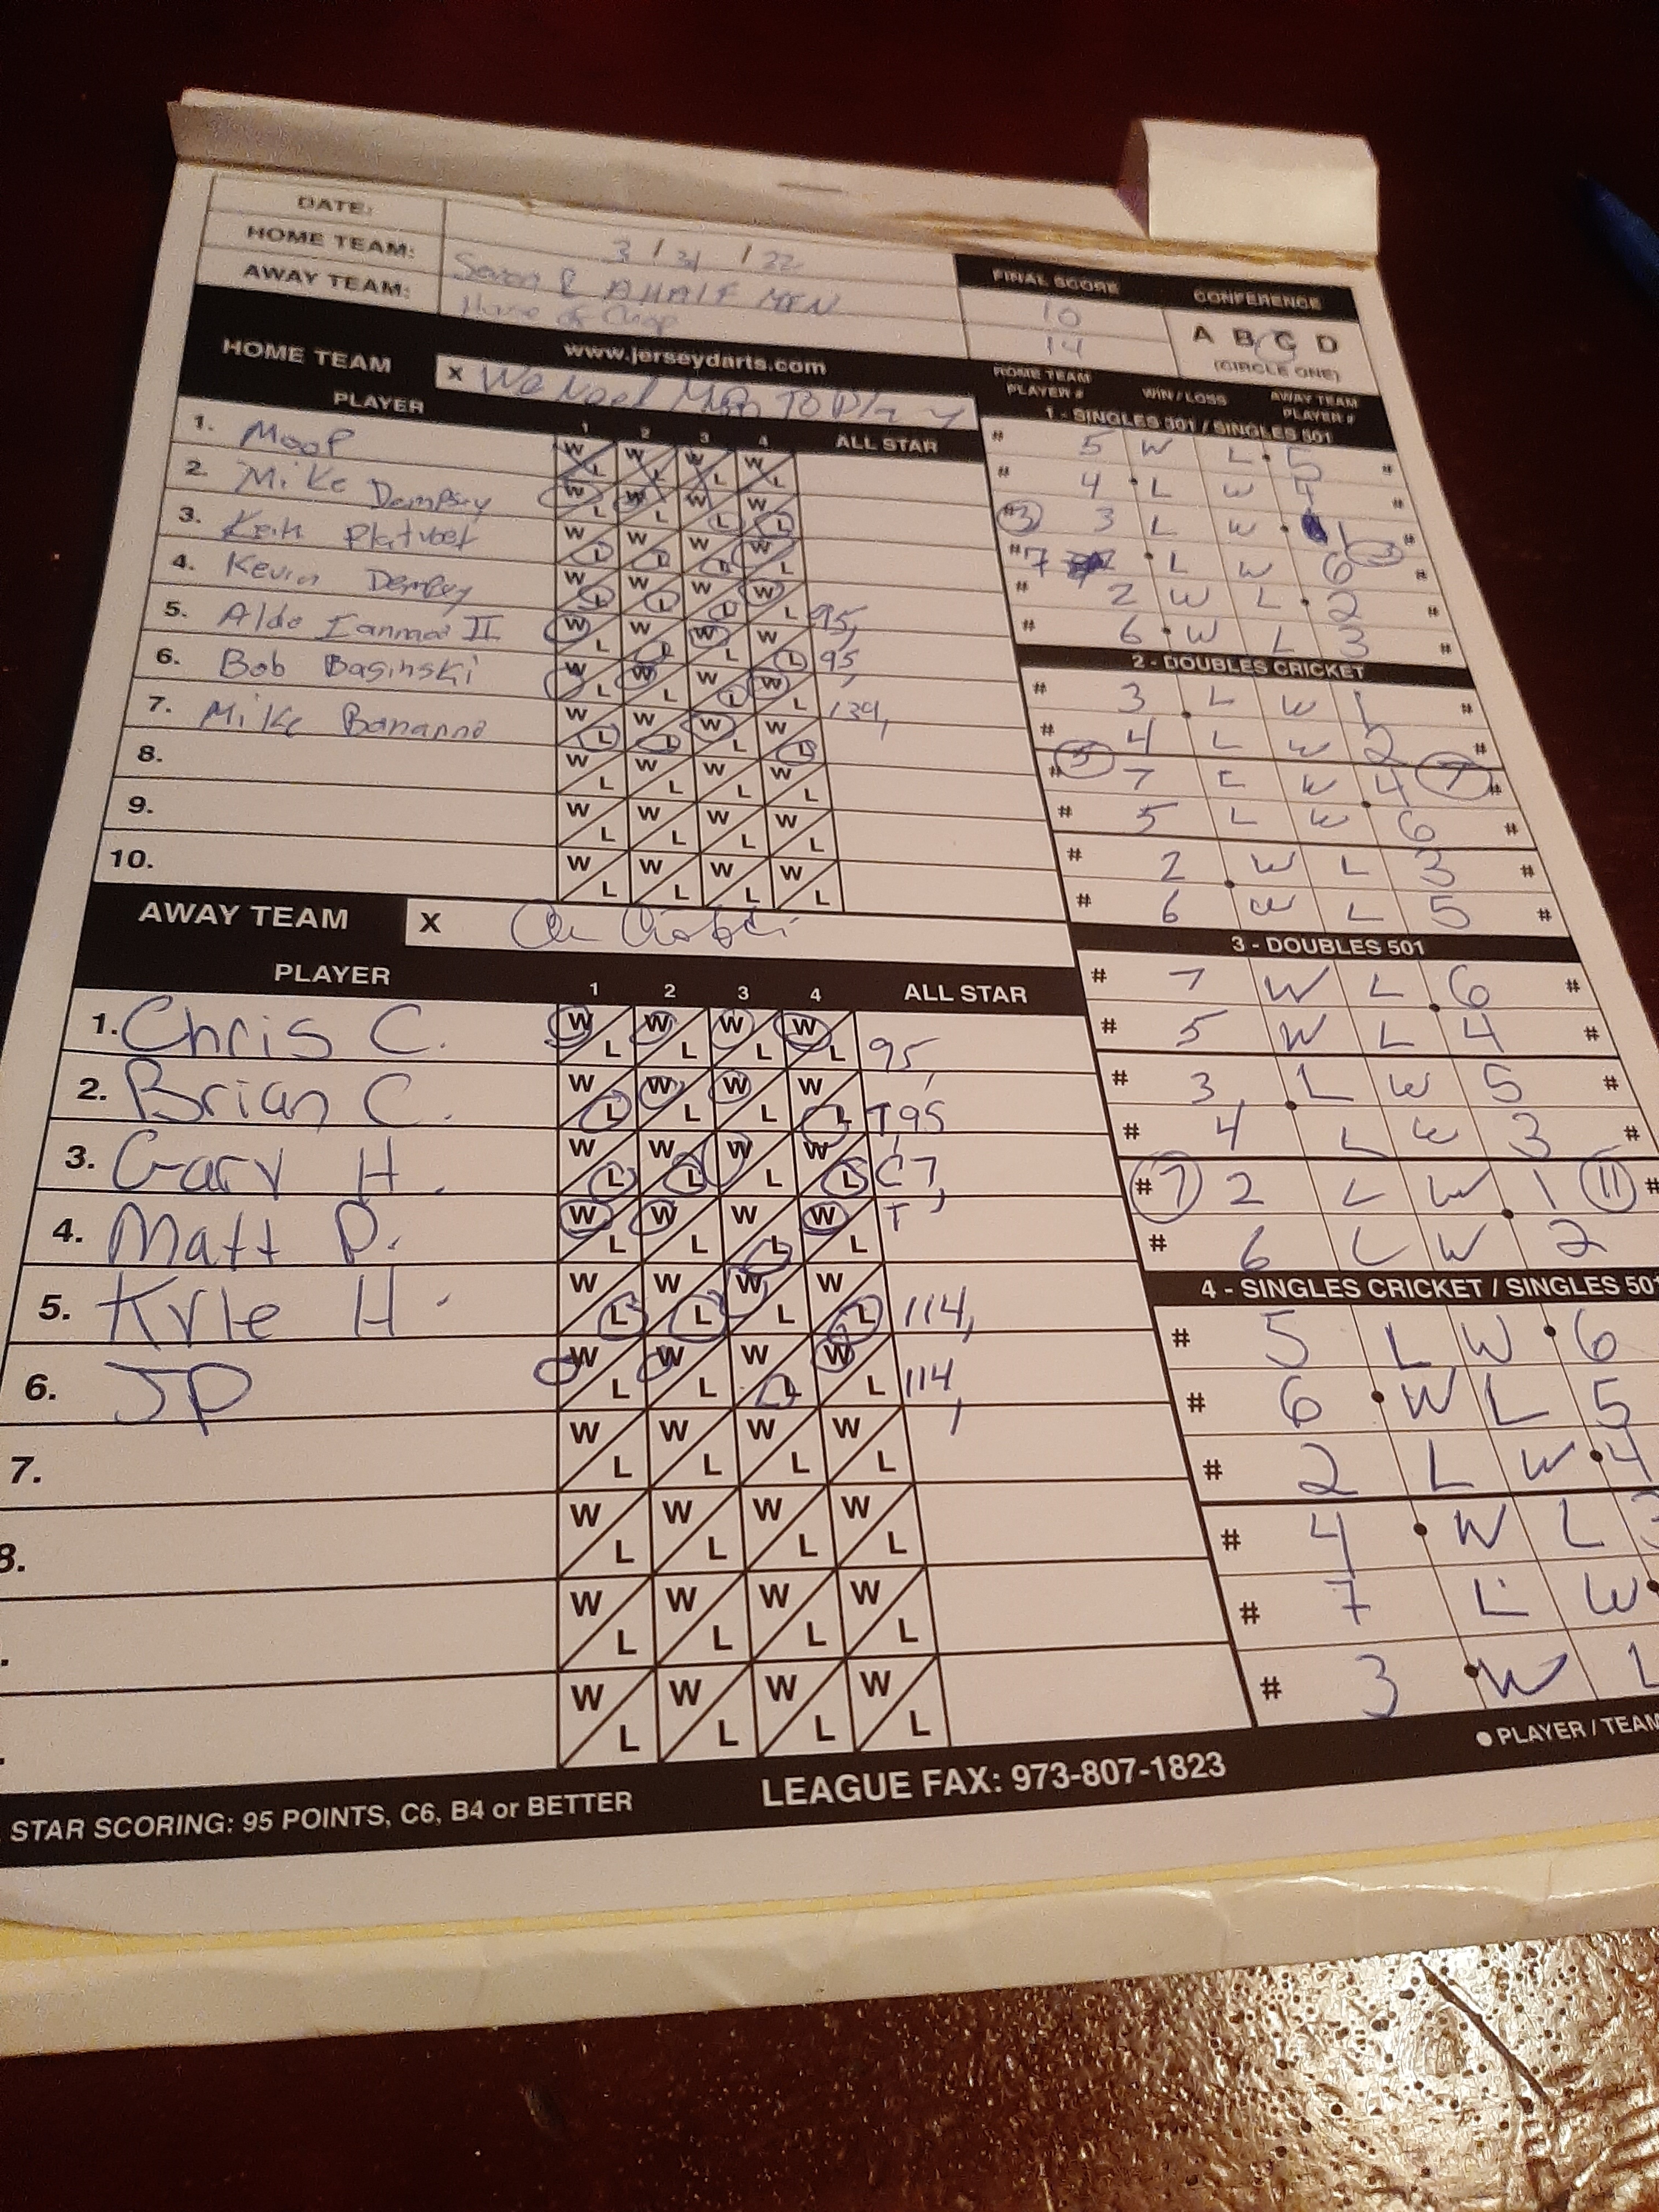 DATE: 3 / 31 / 22
HOME TEAM: Seven & A HALF MEN
AWAY TEAM: House of Chop
FINAL SCORE
10
14
CONFERENCE
A B C D
(CIRCLE ONE)
www.jerseydarts.com
HOME TEAM X We Need
PLAYER 1 2 3 4 ALL STAR
1. Moop W L W L W L W L
2. Mike Dempsey W L W L W L W L
3. Keith W L W L W L W L
4. Kevin Dempsey W L W L W L W L 95,
5. Aldo Ianmar II W L W L W L W L 95,
6. Bob Basinski W L W L W L W L 139,
7. Mike Bananno W L W L W L W L
8. W L W L W L W L
9. W L W L W L W L
10. W L W L W L W L
AWAY TEAM X
PLAYER 1 2 3 4 ALL STAR
1. Chris C. W L W L W L W L 95,
2. Brian C. W L W L W L W L T95
3. Gary H. W L W L W L W L C7,
4. Matt P. W L W L W L W L T
5. Kyle H. W L W L W L W L 114,
6. JP W L W L W L W L 114,
7. W L W L W L W L
8. W L W L W L W L
. W L W L W L W L
. W L W L W L W L
STAR SCORING: 95 POINTS, C6, B4 or BETTER
LEAGUE FAX: 973-807-1823
PLAYER / TEAM
HOME TEAM PLAYER # WIN / LOSS AWAY TEAM PLAYER #
1 - SINGLES 301 / SINGLES 501
# 5 W L 5 #
# 4 L W 4 #
# 3 3 L W 1 3 #
# 7 L W 6 #
# 2 W L 2 #
# 6 W L 3 #
2 - DOUBLES CRICKET
# 3 L W 1 #
# 4 L W 2 #
# 5 7 L W 4 7 #
# 5 L W 6 #
# 2 W L 3 #
# 6 W L 5 #
3 - DOUBLES 501
# 7 W L 6 #
# 5 W L 4 #
# 3 L W 5 #
# 4 L W 3 #
# 7 2 L W 1 11 #
# 6 L W 2
4 - SINGLES CRICKET / SINGLES 501
# 5 L W 6
# 6 W L 5
# 2 L W 4
# 4 W L 3
# 7 L W
# 3 W L